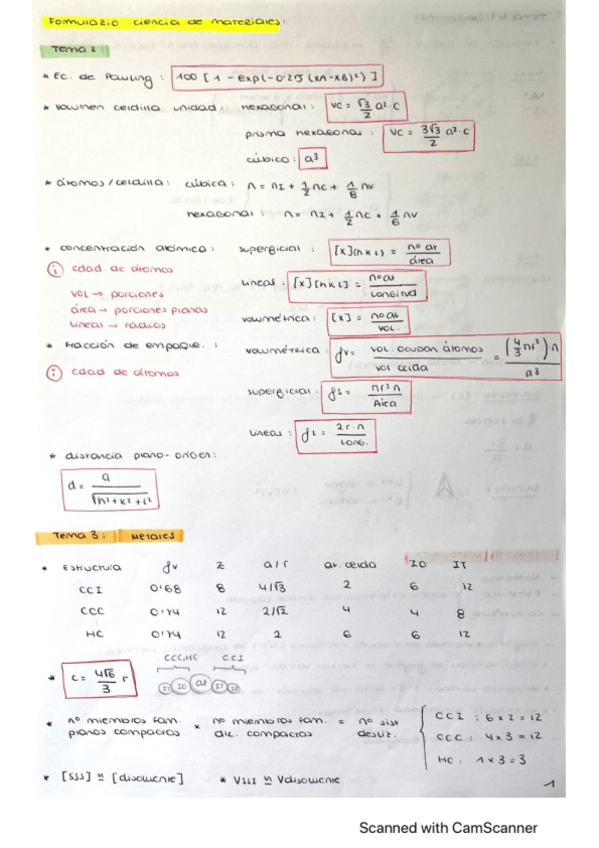 Formulario ciencia de materiales:
Tema 2:
* Ec. de Pauling: 100 [1 - exp(-0'25 (xA-xB)²)]
* Volumen celdilla unidad: hexagonal: Vc = √3/2 a²·c
prisma hexagonal: Vc = 3√3/2 a²·c
cúbico: a³
* átomos/celdilla: cúbica: n = nI + 1/2 nc + 1/8 nv
hexagonal: n = nI + 1/2 nc + 1/6 nv
* concentración atómica: superficial: [x](hkl) = nº at/área
(i) cdad. de átomos
lineal: [x][hkl] = nº at/longitud
vol → porciones
área → porciones planas
lineal → radios
volumétrica: [x] = nº at/vol.
* Fracción de empaque.: volumétrica: fv = vol. ocupan átomos/vol celda = (4/3 πr³)·n/a³
(i) cdad de átomos
superficial: fs = πr²n/Área
lineal: fL = 2r·n/Long.
* distancia plano-origen:
d = a/√h²+k²+l²
Tema 3: Metales
* Estructura fv z a/r at. celda IO IT
CCI 0'68 8 4/√3 2 6 12
CCC 0'74 12 2/√2 4 4 8
HC 0'74 12 2 6 6 12
CCC,HC CCI
* c = 4√6/3 r IT IO at IT IO
* nº miembros fam. planos compactos × nº miembros fam. dir. compactas = nº sist desliz.
CCI: 6x2=12
CCC: 4x3=12
HC: 1x3=3
* [SSS] ≌ [disolvente] * VSSI ≌ Vdisolvente
1
Scanned with CamScanner